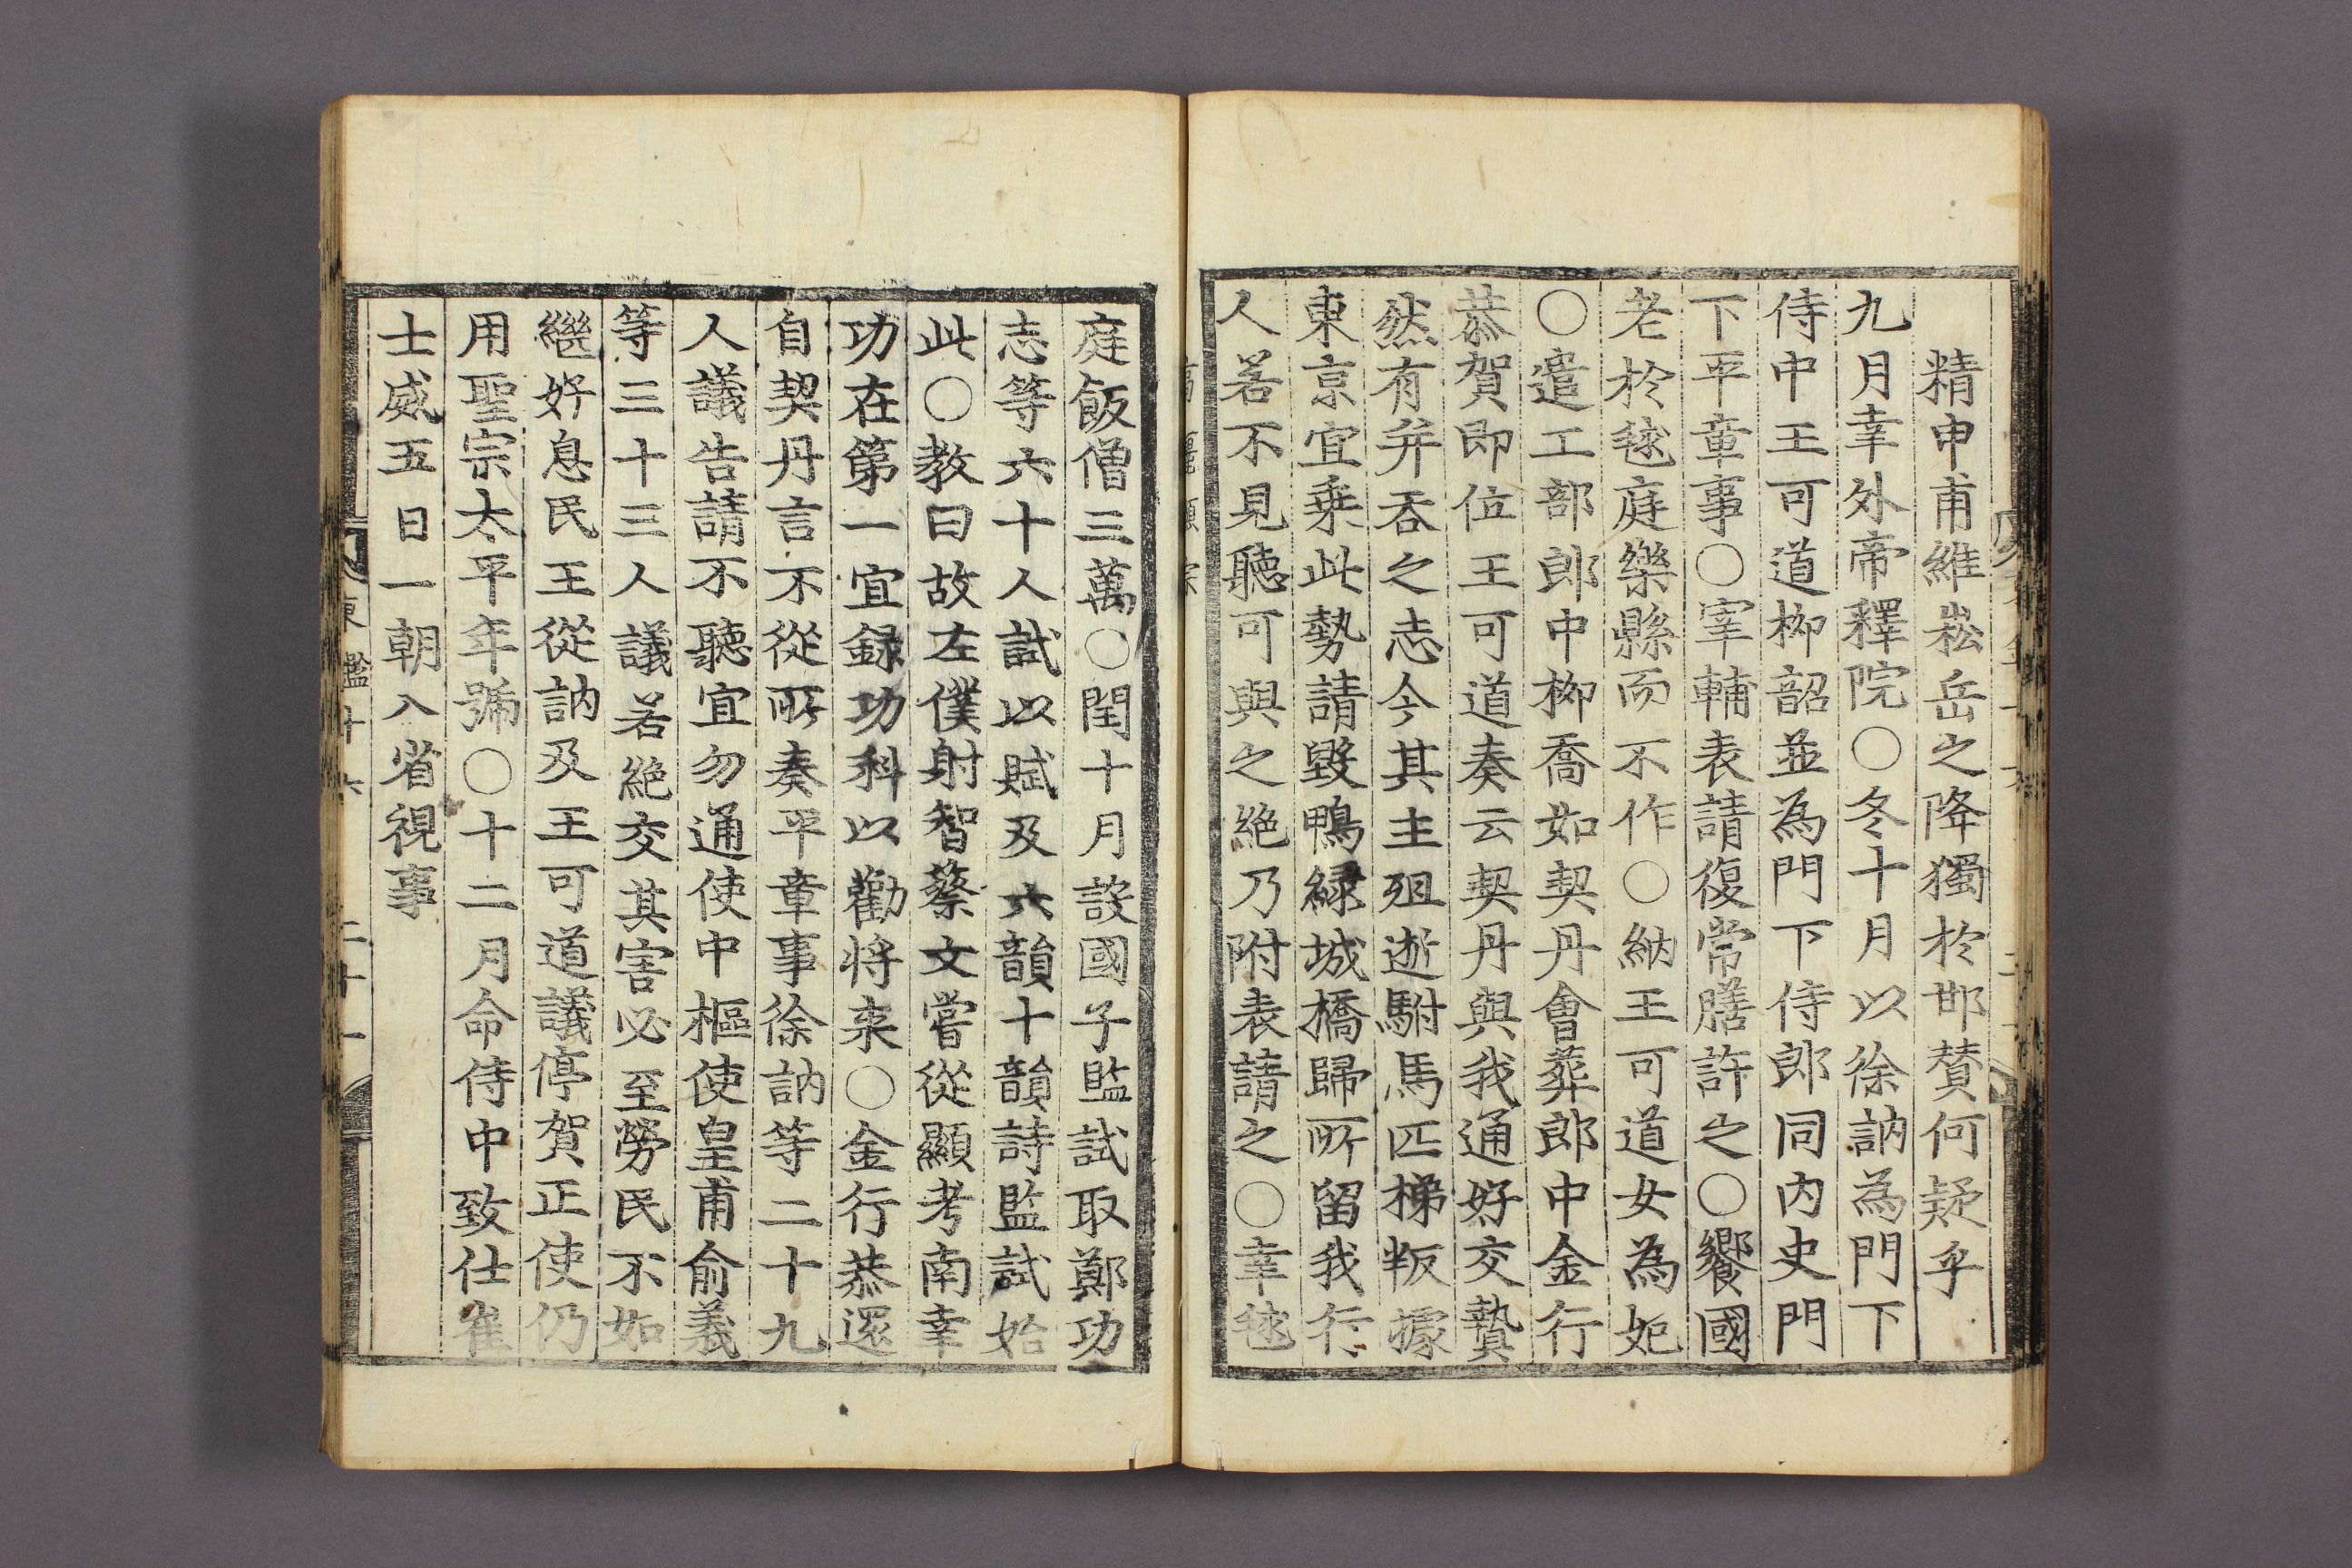 精申甫維崧岳之降獨於邯賛何疑乎
九月幸外帝釋院○冬十月以徐訥為門下
侍中王可道柳韶並為門下侍郎同内史門
下平章事○宰輔表請復常膳許之○饗國
老於毬庭樂縣而不作○納王可道女為妃
○遣工部郎中柳喬如契丹會葬郎中金行
恭賀即位王可道奏云契丹與我通好交贄
然有并吞之志今其主殂逝駙馬匹梯叛據
東京宜乗此勢請毀鴨緑城橋歸所留我行
人若不見聽可與之絶乃附表請之○幸毬
庭飯僧三萬○閏十月設國子監試取鄭功
志等六十人試以賦及六韻十韻詩監試始
此○教曰故左僕射智蔡文嘗從顯考南幸
功在第一宜録功科以勸將来○金行恭還
自契丹言不從所奏平章事徐訥等二十九
人議告請不聽宜勿通使中樞使皇甫俞義
等三十三人議若絶交其害必至勞民不如
繼好息民王從訥及王可道議停賀正使仍
用聖宗太平年號○十二月命侍中致仕崔
士威五日一朝入省視事